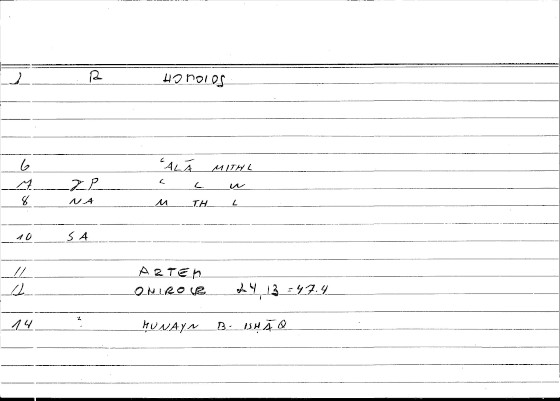 1 R HOMOIOS
6 ʿALĀ MITHL
7 ZP ʿ L W
8 NA M TH L
10 SA
11 ARTEM
12 ONIROCR 24,13 = 47.4
14 ḤUNAYN B. ISḤĀQ